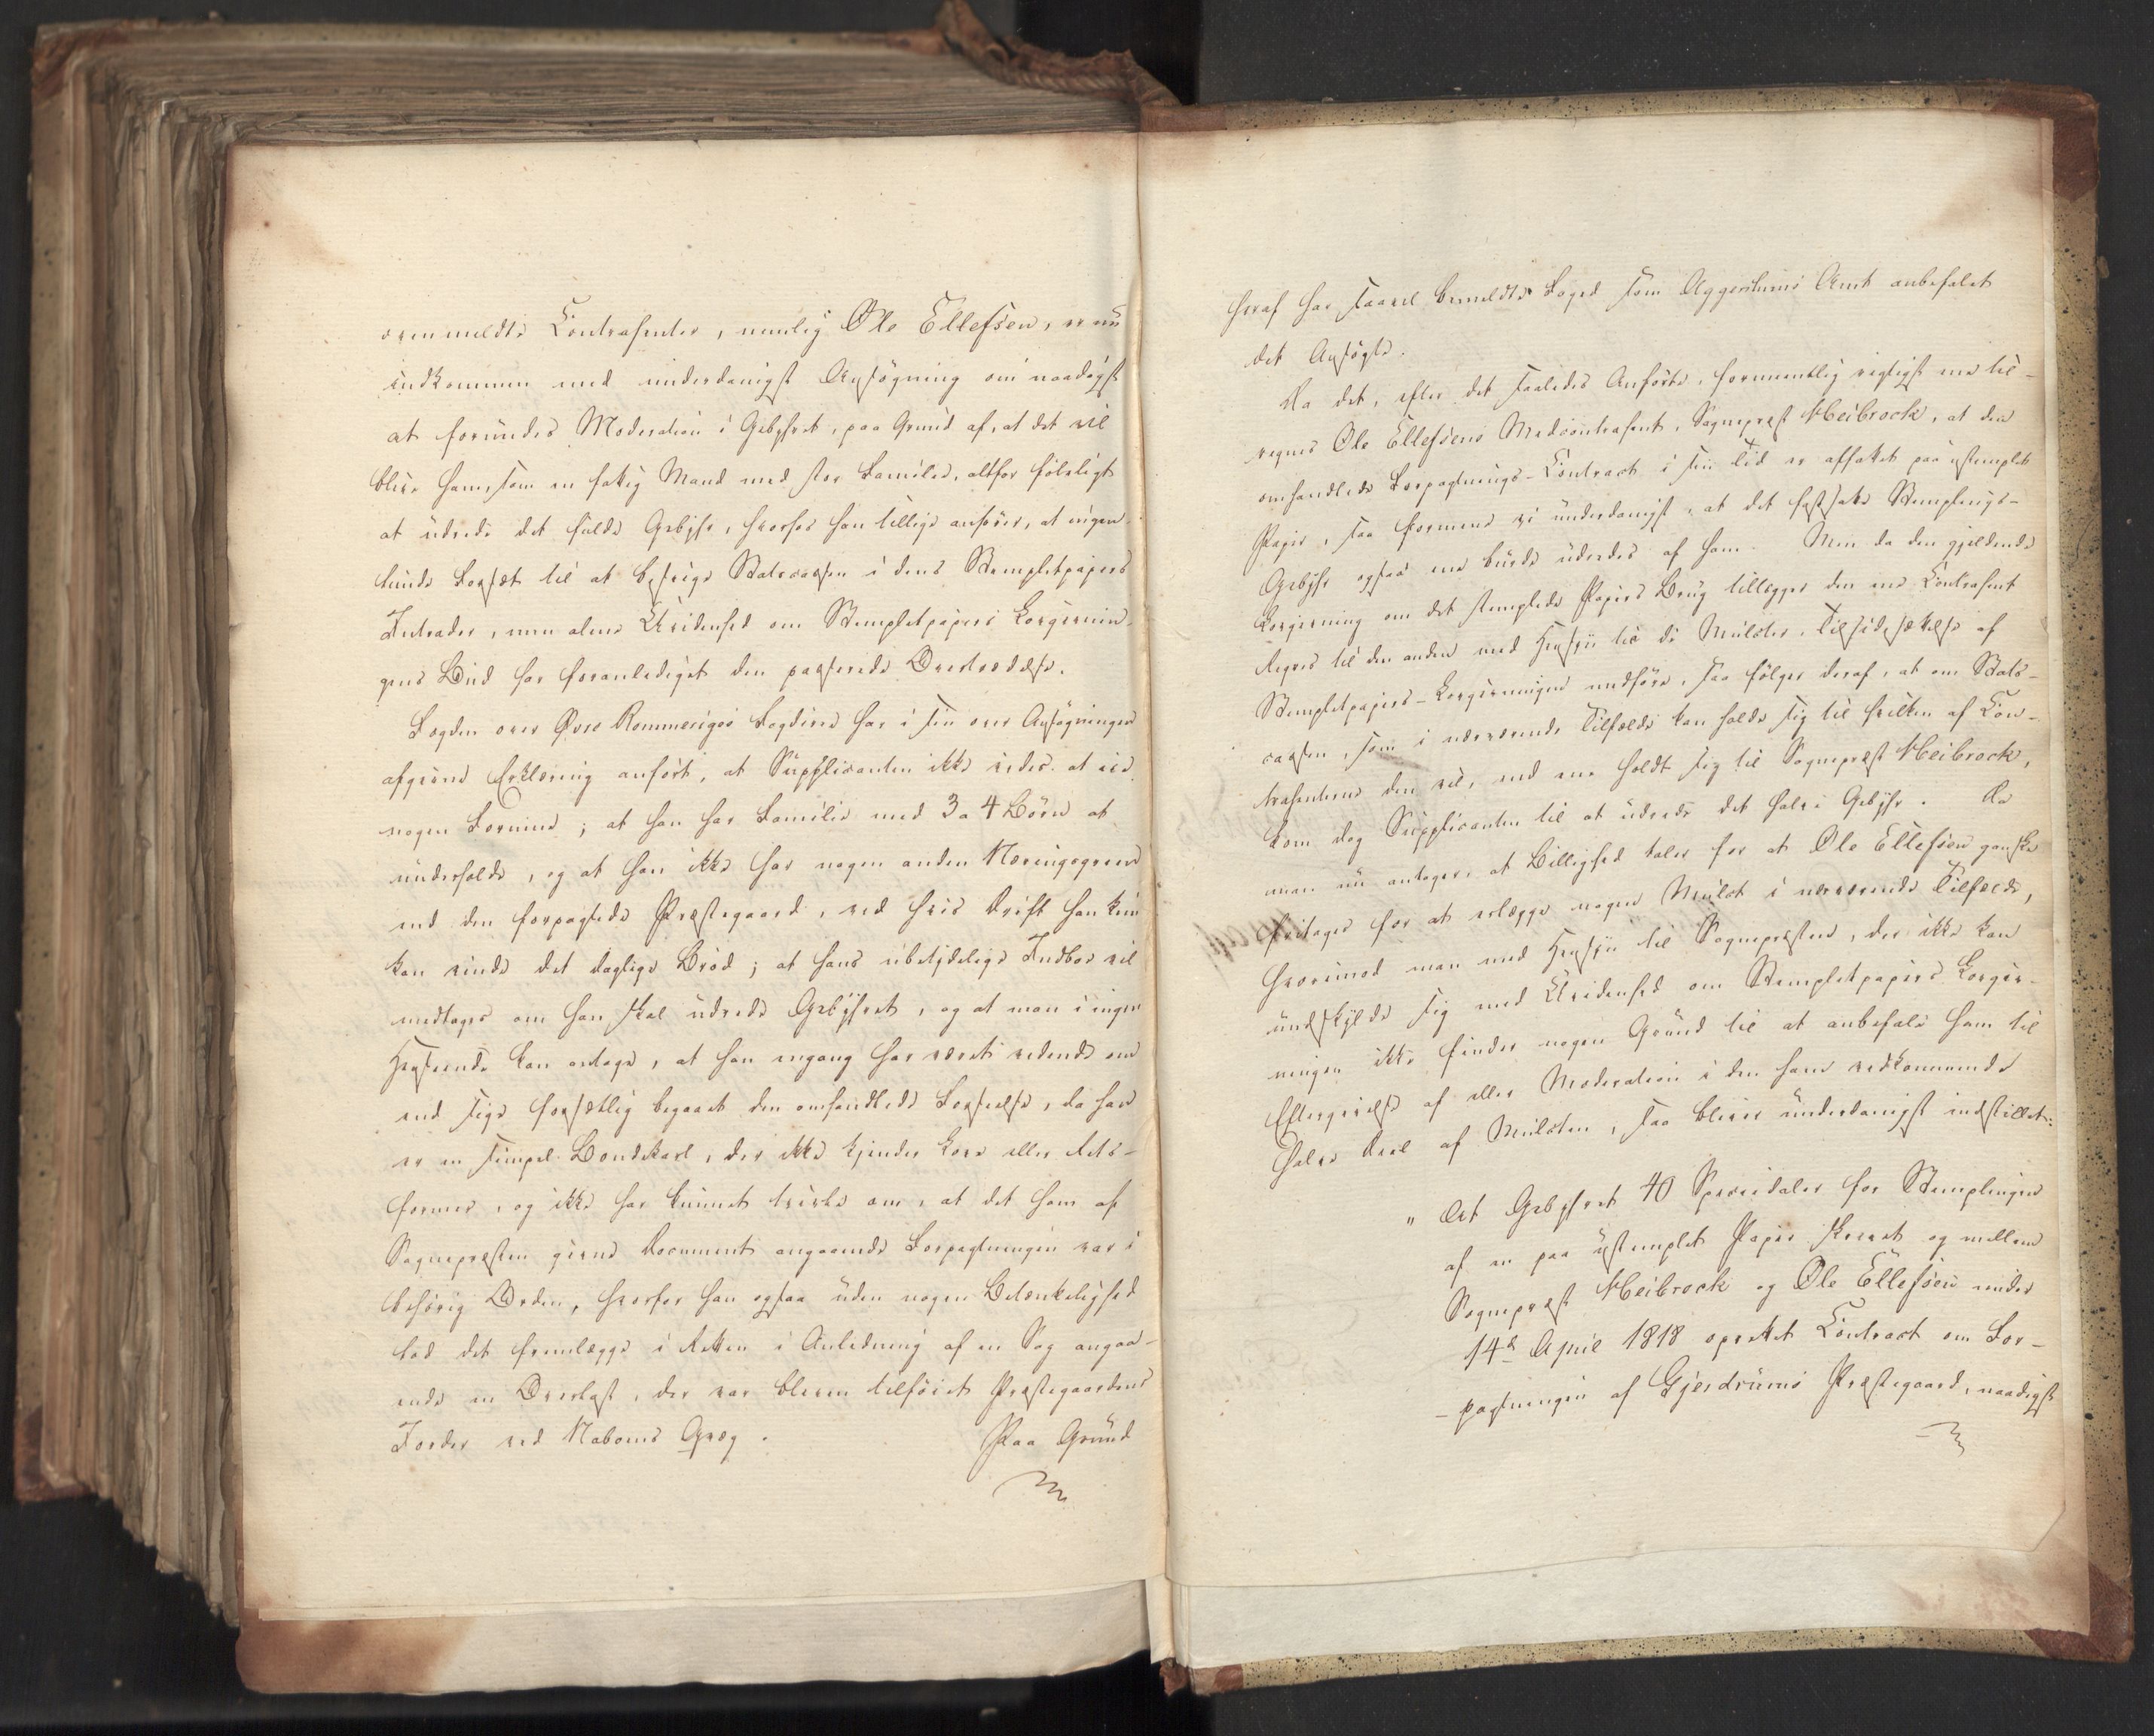 ovenmeldte Contrahenter, nemlig Ole Ellefsen, er nu
indkommen med underdanigst Ansøgning om naadigst
at forundes Moderation i Gebyhret, paa Grund af, at det vil
blive ham, som en fattig Mand med stor Familie, altfor føleligt
at udrede det fulde Gebyhr, hvorfor han tillige anfører, at ingen-
lunde Forsæt til at besvige Statscassen i dens Stempletpapiirs
Intrader, men alene Uvidenhed om Stempletpapiirs Lovgivnin-
gens Bud har foranlediget den passerede Overtrædelse.
Fogden over Øvre Rommeriges Fogderie har i sin over Ansøgningen
afgivne Erklæring anført, at Supplicanten ikke vides at eie
nogen Formue; at han har Familie med 3 a 4 Børn at
underholde, og at han ikke har nogen anden Næringsgreen
end den forpagtede Præstegaard, ved hvis Drift han kun
kan vinde det daglige Brød; at hans ubetydelige Indboe vil
medtages om han skal udrede Gebyhret, og at man i ingen
Henseende kan antage, at han engang har været vidende om
end sige forsætlig begaaet den omhandlede Forseelse, da han
er en simpel Bondekarl, der ikke kjender Love eller Rets-
former, og ikke har kunnet tvivle om, at det ham af
Sognepræsten givne Document angaaende Forpagtningen var i
behørig Orden, hvorfor han ogsaa uden nogen Betænkelighed
lod det fremlægge i Retten i Anledning af en Sag angaa-
ende en Overlast, der var bleven tilføiet Præstegaardens
Jorder ved Naboens Qvæg. Paa Grund
heraf har saavel bemeldte Foged som Aggershuus Amt anbefalet
det Ansøgte.
Da det, efter det saaledes Anførte, formeentlig rigtigst maa til-
regnes Ole Ellefsens Medcontrahent, Sognepræst Meibrock, at den
omhandlede Forpagtnings-Contract i sin Tid er affattet paa ustemplet
Papir, saa formene vi underdanigst, at det fastsatte Stemplings-
Gebyhr ogsaa maa burde udredes af ham. Men da den gjeldende
Lovgivning om det stemplede Papiirs Brug tillægger den ene Contrahent
Regres til den anden med Hensyn til de Mulcter, Tilsidesættelse af
Stempletpapiirs-Lovgivningen medføre, saa følger deraf, at om Stats-
cassen, som i nærværende Tilfælde kan holde sig til hvilken af Con-
trahenterne den vil, end ene holdt sig til Sognepræst Meibrock,
kom dog Supplicanten til at udrede det halve Gebyhr. Da
man nu antager, at Billighed taler for at Ole Ellefsen ganske
fritages for at erlægge nogen Mulct i nærværende Tilfælde,
hvorimod man med Hensyn til Sognepræsten, der ikke kan
undskylde sig med Uvidenhed om Stempletpapiirs Lovgiv-
ningen ikke finder nogen Grund til at anbefale ham til
Eftergivelse af eller Moderation i den ham vedkommende
halve Deel af Mulcten, saa bliver underdanigst indstillet:
" At Gebyhret 40 Speciedaler for Stemplingen
af en paa ustemplet Papir skrevet og mellem
Sognepræst Meibrock og Ole Ellefsen under
14de April 1818 oprettet Contract om For-
-pagtningen af Gjerdrums Præstegaard, naadigst